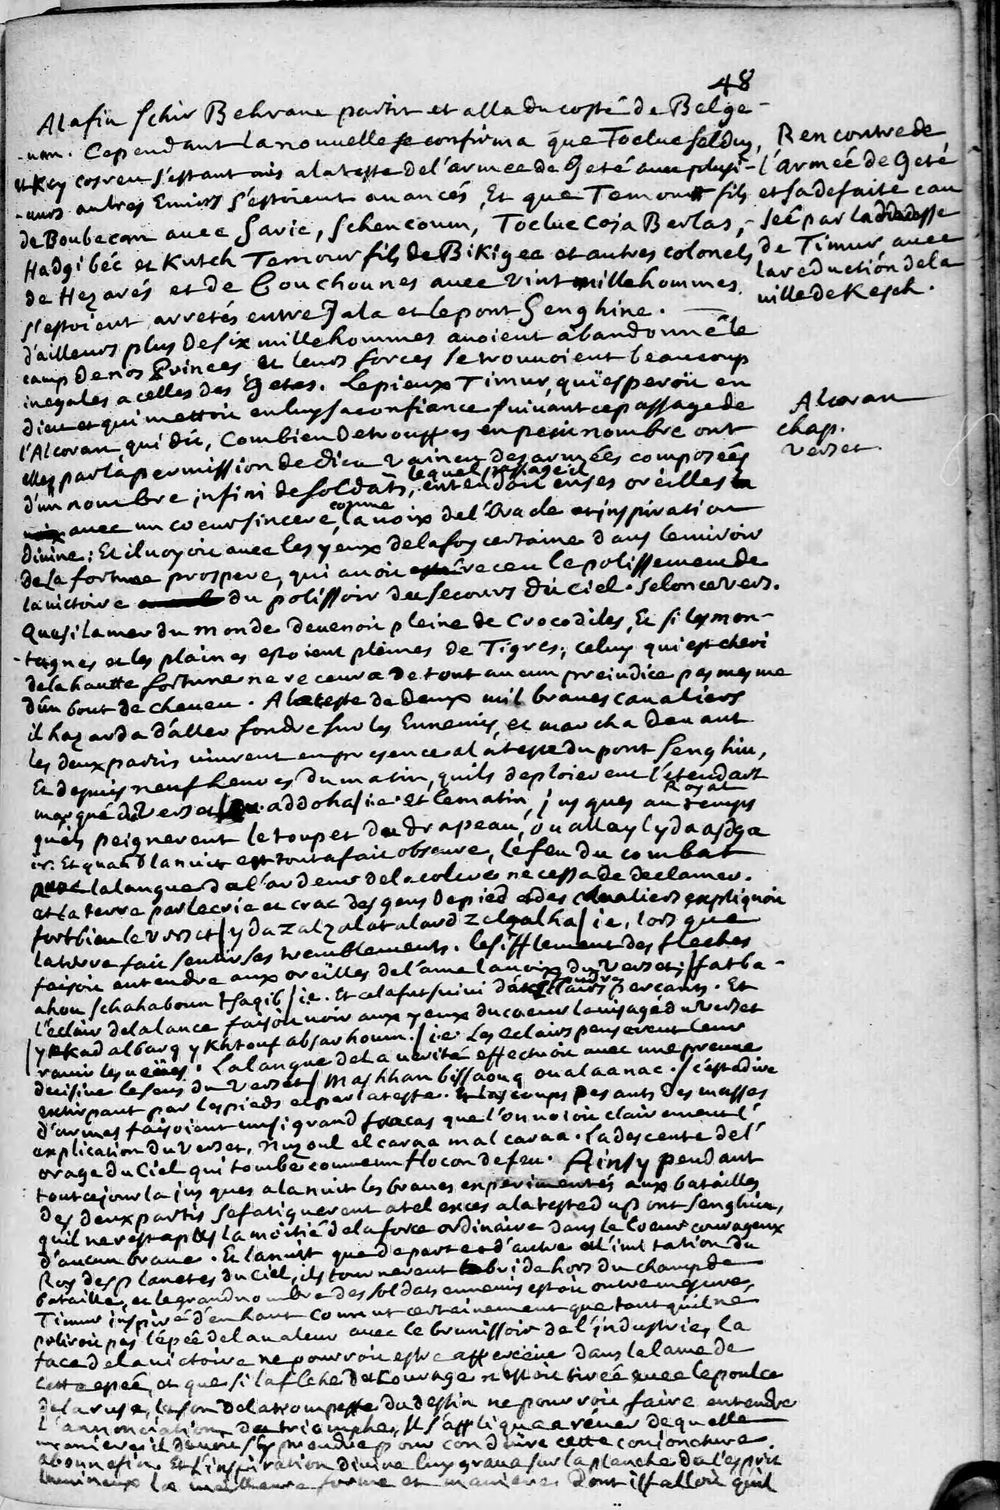 48
A la fin Schir Behrane partit et alla du costé de Belge-
-nan. Cependant la nouvelle se confirma que Toclue Seldus,
et Key cosreu s'estant mis a la teste de l'armee de Geté avec plusi-
-eurs autres Emirs s'estoient avancés, Et que Temour fils
de Boubecan avec Saric, Schencoum, Toclue Coja Berlas,
Hadgi béc et Kutch Temour fils de Bikigee et autres colonels
de Hezarés et de Couchounes avec vint mille hommes
s'estoient arretés entre Jala et le pont Senghine.
d'ailleurs plus de six mille hommes avoient abandonné le
camp de nos Princes et leurs forces se trouvoient beaucoup
inegales a celles des Getes. Le pieux Timur, qui esperoit en
dieu et qui mettoit en luy sa confiance suivant ce passage de
l'Alcoran, qui dit, Combien de trouppes en petit nombre ont
elles par la permission de dieu vaincu des armées composées
d'un nombre infini de soldats, lequel passage il entendoit en ses oreilles
avec un coeur sincere comme la voix de l'Oracle et inspiration
divine; Et il voyoit avec les yeux de la foy certaine dans le miroir
de la fortune prospere, qui avoit receu le polissement de
la victoire du polissoir du secours du Ciel. Selon ce vers.
Que si la mer du monde devenoit pleine de Crocodiles, Et si les mon-
-tagnes et les plaines estoient pleines de Tigres; celuy qui est cheri
de la haute fortune ne recevra de tout aucun prejudice pas mesme
d'un bout de cheveu. A la teste de deux mil braves cavaliers
il hazarda d'aller fondre sur les Ennemis, et marcha devant
les deux partis vinrent en presence a la teste du pont Senghin,
Et depuis neuf heures du matin, quils deploierent l'etendart
marqué du Verset addoha ie. et le matin, jusques au Royal temps
quils peignerent le toupet du drapeau, oualleyl ydaasdga
ie. Et quand la nuit est tout a fait obscure, le feu du combat
la langue de l'ardeur de la colere ne cessa de declamer.
et la terre par le crie et crac des gens de pied et des cavaliers expliquoit
fort bien le verset ydazalzalat alard zelzalha ie, lors que
la terre fait sentir ses tremblements. le sifflement des fleches
faisoit entendre aux oreilles de l'ame la voix du verset; fatba-
ahou schahaboun tsaqib ie. Et cela fut suivi d'éclairs percants. Et
l'éclair de la lance faisoit voir aux yeux du coeur le visage du verset
yekad albarq ykhtouf absarhoum. ie. Les eclairs penserent leur
ravir les veües. La langue de la verité effectuoit avec une preuve
decisive le sens du Verset Mashhan bissaouq oualaanac. c'est a dire
extirpant par les pieds et par la teste. Et les coups pesants des masses
d'armes faisoient un si grand fracas que l'on voioit clairement l'
explication du Verset, nuzoul el caraa mal caraa. La descente de l'
orage du Ciel qui tombe comme un flocon de feu. Ainsy pendant
tout ce jour la jusques a la nuit les braves experimentés aux batailles
des deux partis se fatiguerent a tel exces a la teste du pont Senghin,
quil ne resta plus la moitié de la force ordinaire dans le Coeur courageux
d'aucun brave. Et la nuit que de part et d'autre a l'imitation du
Roy des planetes du Ciel, ils tournerent bride hors du champ de
bataille, et le grand nombre des soldats ennemis estoit outre mesure,
Timur inspiré d'en haut connut certainement que tant qu'il ne
poliroit pas l'épée de la valeur avec le brunissoir de l'industrie, la
face de la victoire ne pourroit estre apperceue dans la lame de
cette epée, et que si la fleche du Courage n'estoit tirée avec le poulce
de la ruse, le son de la trompette du destin ne pourroit faire entendre
l'annonciation du triomphe, Il s'appliqua a rever de quelle
maniere il devoit s'y prendre pour conduire cette conjoncture
a bonne fin. Et l'inspiration divine luy grava sur la planche de l'esprit
lumineux la meilleure forme et maniere dont il falloit quil
Rencontre de
l'armée de Geté
et sa defaite cau
seé par l'addresse
de Timur avec
la reduction de la
ville de Kesch.
Alcoran
chap.
verset